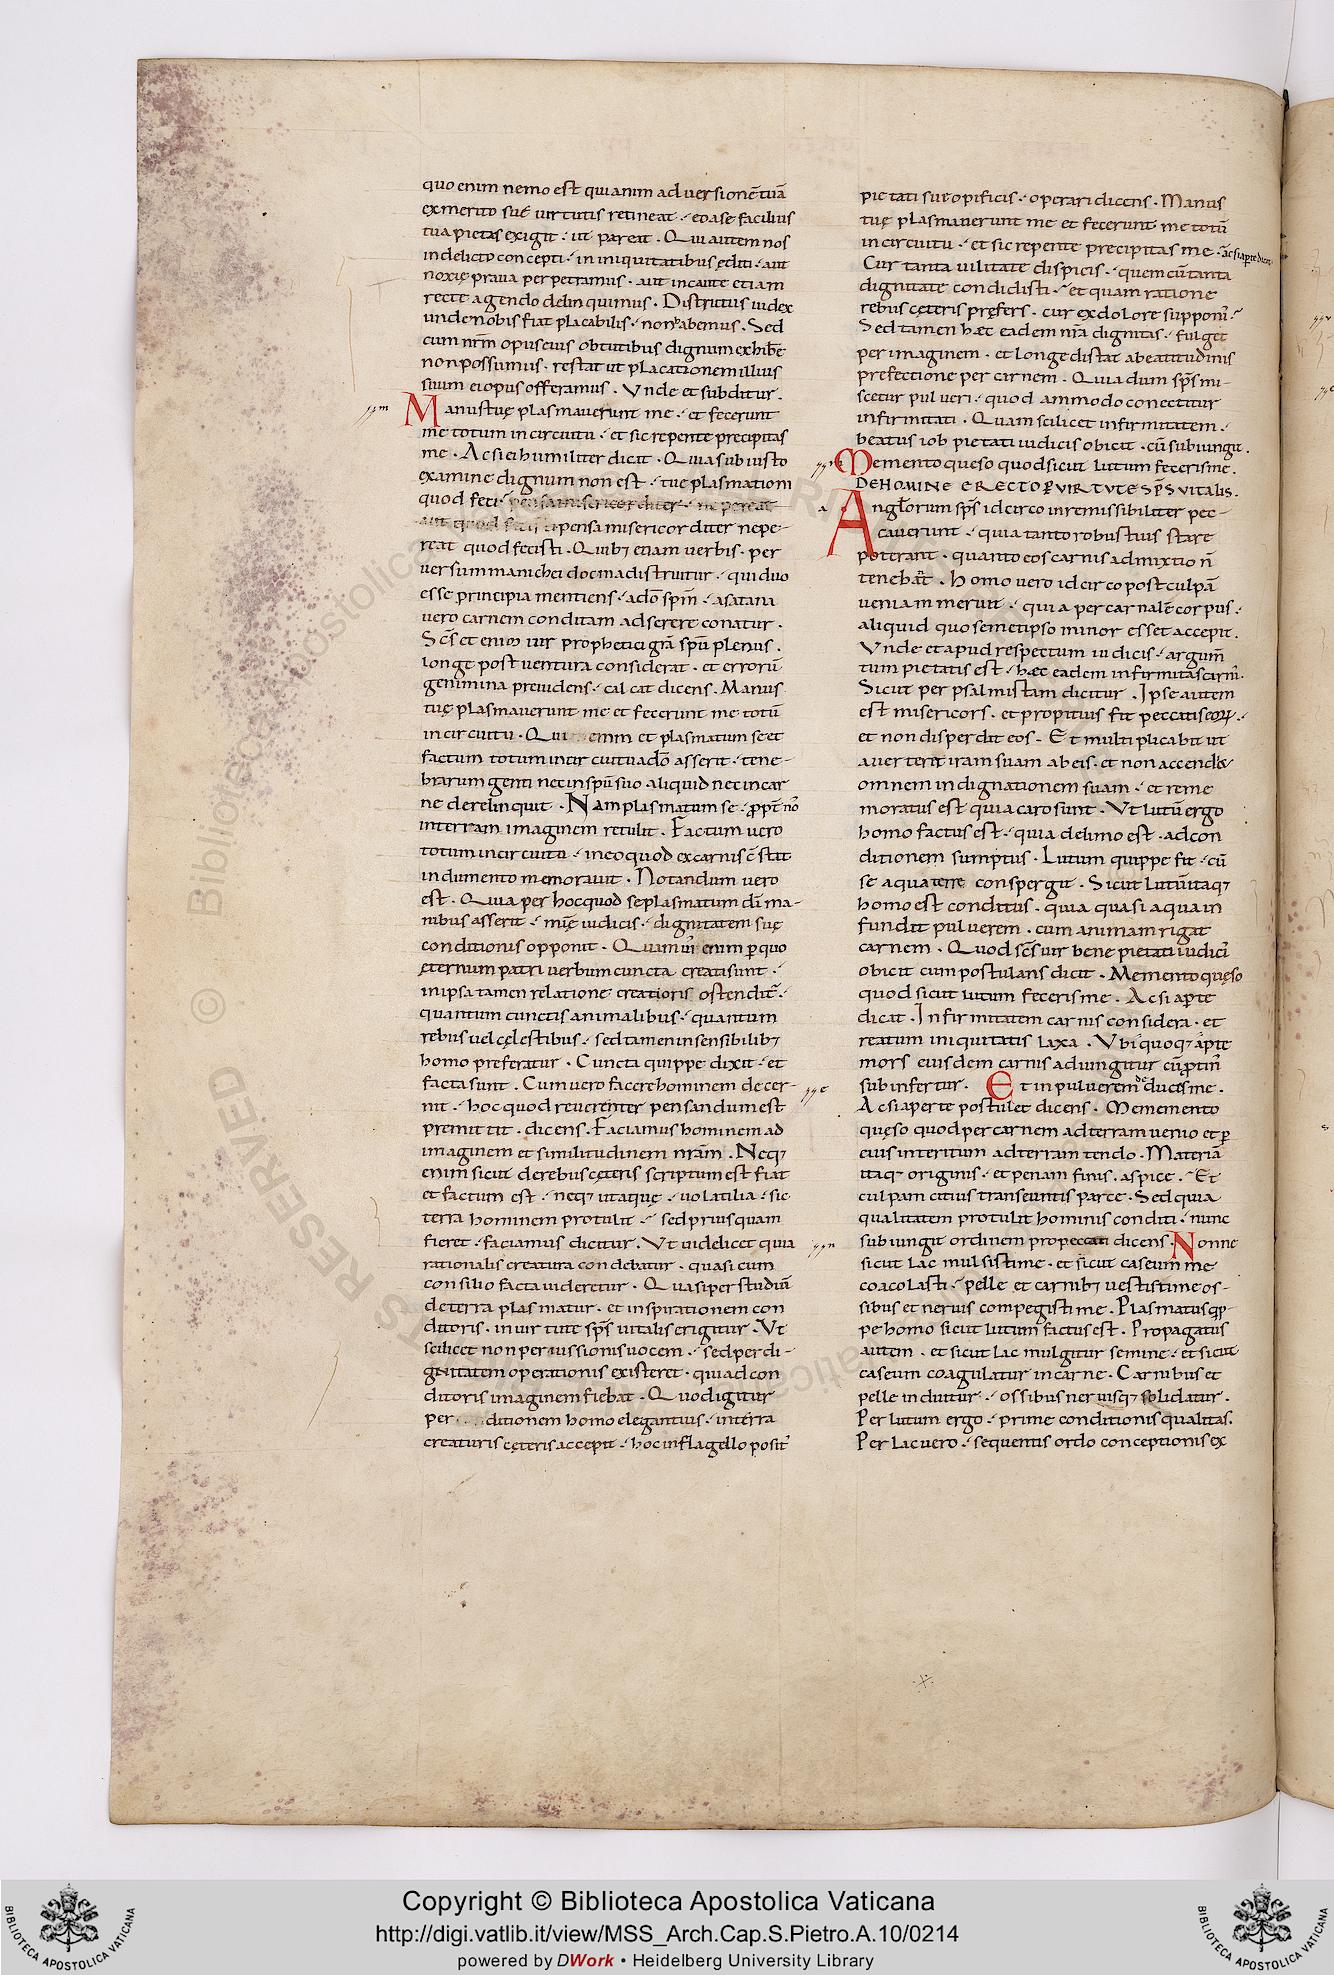 quo enim nemo est qui animaduersionē tuā
ex merito suę uirtutis retineat · eo a se facilius
tua pietas exigit · ut parcat · Qui autem nos
in delicto concepti · in iniquitatibus editi · aut
noxię praua perpetramus · aut incaute etiam
recte agendo delinquimus · Districtus iudex
unde nobis fiat placabilis · non habemus · Sed
cum nrm̄ opus eius obtutibus dignum exhibē
non possumus · restat ut placationem illius
suum ei opus offeramus · Vnde et subditur ·
Manus tuę plasmauerunt me · et fecerunt
me totum in circuitu · et sic repente precipitas
me · Ac si ei humiliter dicat · Quia sub iusto
examine dignum non est · tuę plasmationi
quod feci · pensa misericorditer · ne pereat
pensa misericorditer ne pe-
reat quod fecisti · Quibȝ etiam uerbis · per
uersum manichei docma distruitur · qui duo
esse principia mentiens · a dō spm̄ · a satana
uero carnem conditam adserere conatur ·
Scs̄ etenim uir prophetici grā spū plenus ·
longe post uentura considerat · et errorū
genimina preuidens · calcat dicens · Manus
tuę plasmauerunt me et fecerunt me totū
in circuitu · Qui enim et plasmatum se et
factum totum in circuitu a dō asserit · tene-
brarum genti nec in spū suo aliquid nec in car
ne derelinquit · Nam plasmatum se · ppt̄
interram imaginem retulit · Factum uero
totum in circuitu · in eo quod ex carnis cstat
indumento memorauit · Notandum uero
est · Quia per hoc quod se plasmatum dī ma-
nibus asserit · iudicis · dignitatem suę
conditionis opponit · Quamuis enim p quo
ęternum patri uerbum cuncta creata sunt ·
in ipsa tamen relatione creationis ostenditur ·
quantum cunctis animalibus · quantum
rebus uel cęlestibus · sed tamen insensibilibȝ
homo preferatur · Cuncta quippe dixit · et
facta sunt · Cum uero facere hominem decer-
nit · hoc quod reuerenter pensandum est
premittit · dicens · Faciamus hominem ad
imaginem et similitudinem nrām · Neqȝ
enim sicut de rebus cęteris scriptum est fiat
et factum est · neqȝ ut aquę · uolatilia · sic
terra hominem protulit · sed priusquam
fieret · faciamus dicitur · Vt uidelicet quia
rationalis creatura condebatur · quasi cum
consilio facta uideretur · Quasi per studiū
de terra plasmatur · et inspirationem con
ditoris · in uirtute sps̄ uitalis erigitur · Vt
scilicet non per iussionis uocem · sed per di-
gnitatem operationis existeret · qui ad con
ditoris imaginem fiebat · Quod igitur
per ditionem homo elegantius · in terra
creaturis cęteris accepit · hoc in flagello posit
pietati sui opificis · operari dicens · Manus
tuę plasmauerunt me et fecerunt me totū
in circuitu · et sic repente precipitas me · ac si aperte dicat
Cur tanta uilitate dispicis · quem cū tanta
dignitate condidisti · et quam ratione
rebus cęteris prefers · cur ex dolore supponis ·
Sed tamen hæc eadem nrā dignitas · fulget
per imaginem · et longe distat a beatitudinis
prefectione per carnem · Quia dum sps̄ mi-
scetur pulueri · quodammodo conectitur
infirmitati · Quam scilicet infirmitatem ·
beatus iob pietati iudicis obicit · cū subiungit ·
Memento queso quod sicut lutum feceris me ·
DE HOMINE ERECTO P VIRTUTE SPS VITALIS ·
Anglorum sps̄ idcirco inremissibiliter pec-
cauerunt · quia tanto robustius stare
poterant · quanto eos carnis admixtio n̄
tenebat · Homo uero idcirco post culpā
ueniam meruit · quia per carnalē corpus ·
aliquid quo semetipso minor esset accepit ·
Vnde et apud respectum iudicis · argum̄
tum pietatis est · hæc eadem infirmitas carnis ·
Sicut per psalmistam dicitur · Ipse autem
est misericors · et propitius fit peccatis eorum ·
et non disperdit eos · Et multiplicabit ut
auerteret iram suam ab eis · et non accendet
omnem indignationem suam · et reme
moratus est quia caro sunt · Vt lutū ergo
homo factus est · quia de limo est · ad con
ditionem sumptus · Lutum quippe fit · cū
se aqua terre conspergit · Sicut lutū itaqȝ
homo est conditus · quia quasi aqua in
fundit puluerem · cum animam rigat
carnem · Quod scs̄ uir bene pietati iudicis
obicit cum postulans dicit · Memento quęso
quod sicut lutum feceris me · Ac si aperte
dicat · Infirmitatem carnis considera · et
reatum iniquitatis laxa · Vbi quoqȝ aperte
mors eiusdem carnis adiungitur cū protinus
subinfertur · Et in puluerem deduces me ·
Ac si aperte postulet dicens · Memento
quęso quod per carnem ad terram uenio et p
eius interitum ad terram tendo · Materiā
itaqȝ originis · et penam finis · aspice · Et
culpam citius transeuntis parce · Sed quia
qualitatem protulit hominis conditi · nunc
subiungit ordinem propagati dicens · Nonne
sicut lac mulsisti me · et sicut caseum me
coacolasti · pelle et carnibȝ uestisti me os-
sibus et neruis compegisti me · Plasmatus qp-
pe homo sicut lutum factus est · Propagatus
autem · et sicut lac mulgitur semine · et sicut
caseum coagulatur in carne · Carnibus et
pelle induitur · ossibus neruisqȝ solidatur ·
Per lutum ergo · prime conditionis qualitas ·
Per lac uero · sequentis ordo conceptionis ex
Copyright © Biblioteca Apostolica Vaticana
http://digi.vatlib.it/view/MSS_Arch.Cap.S.Pietro.A.10/0214
powered by DWork • Heidelberg University Library